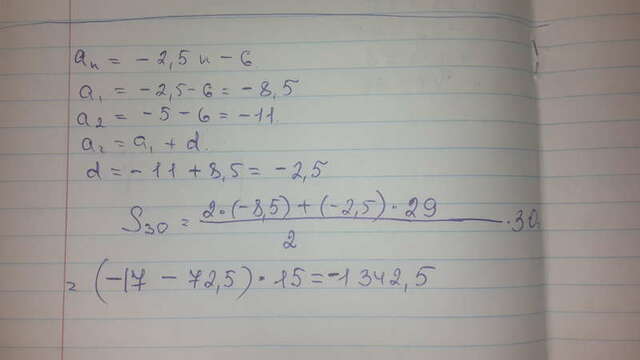 aₙ = - 2,5 n - 6
a₁ = -2,5-6 = -8,5
a₂ = -5-6 = -11.
a₂ = a₁ + d.
d = -11 + 8,5 = -2,5
S₃₀ = (2·(-8,5) + (-2,5)·29)/2 · 30.
= (-17 - 72,5)·15 = -1342,5